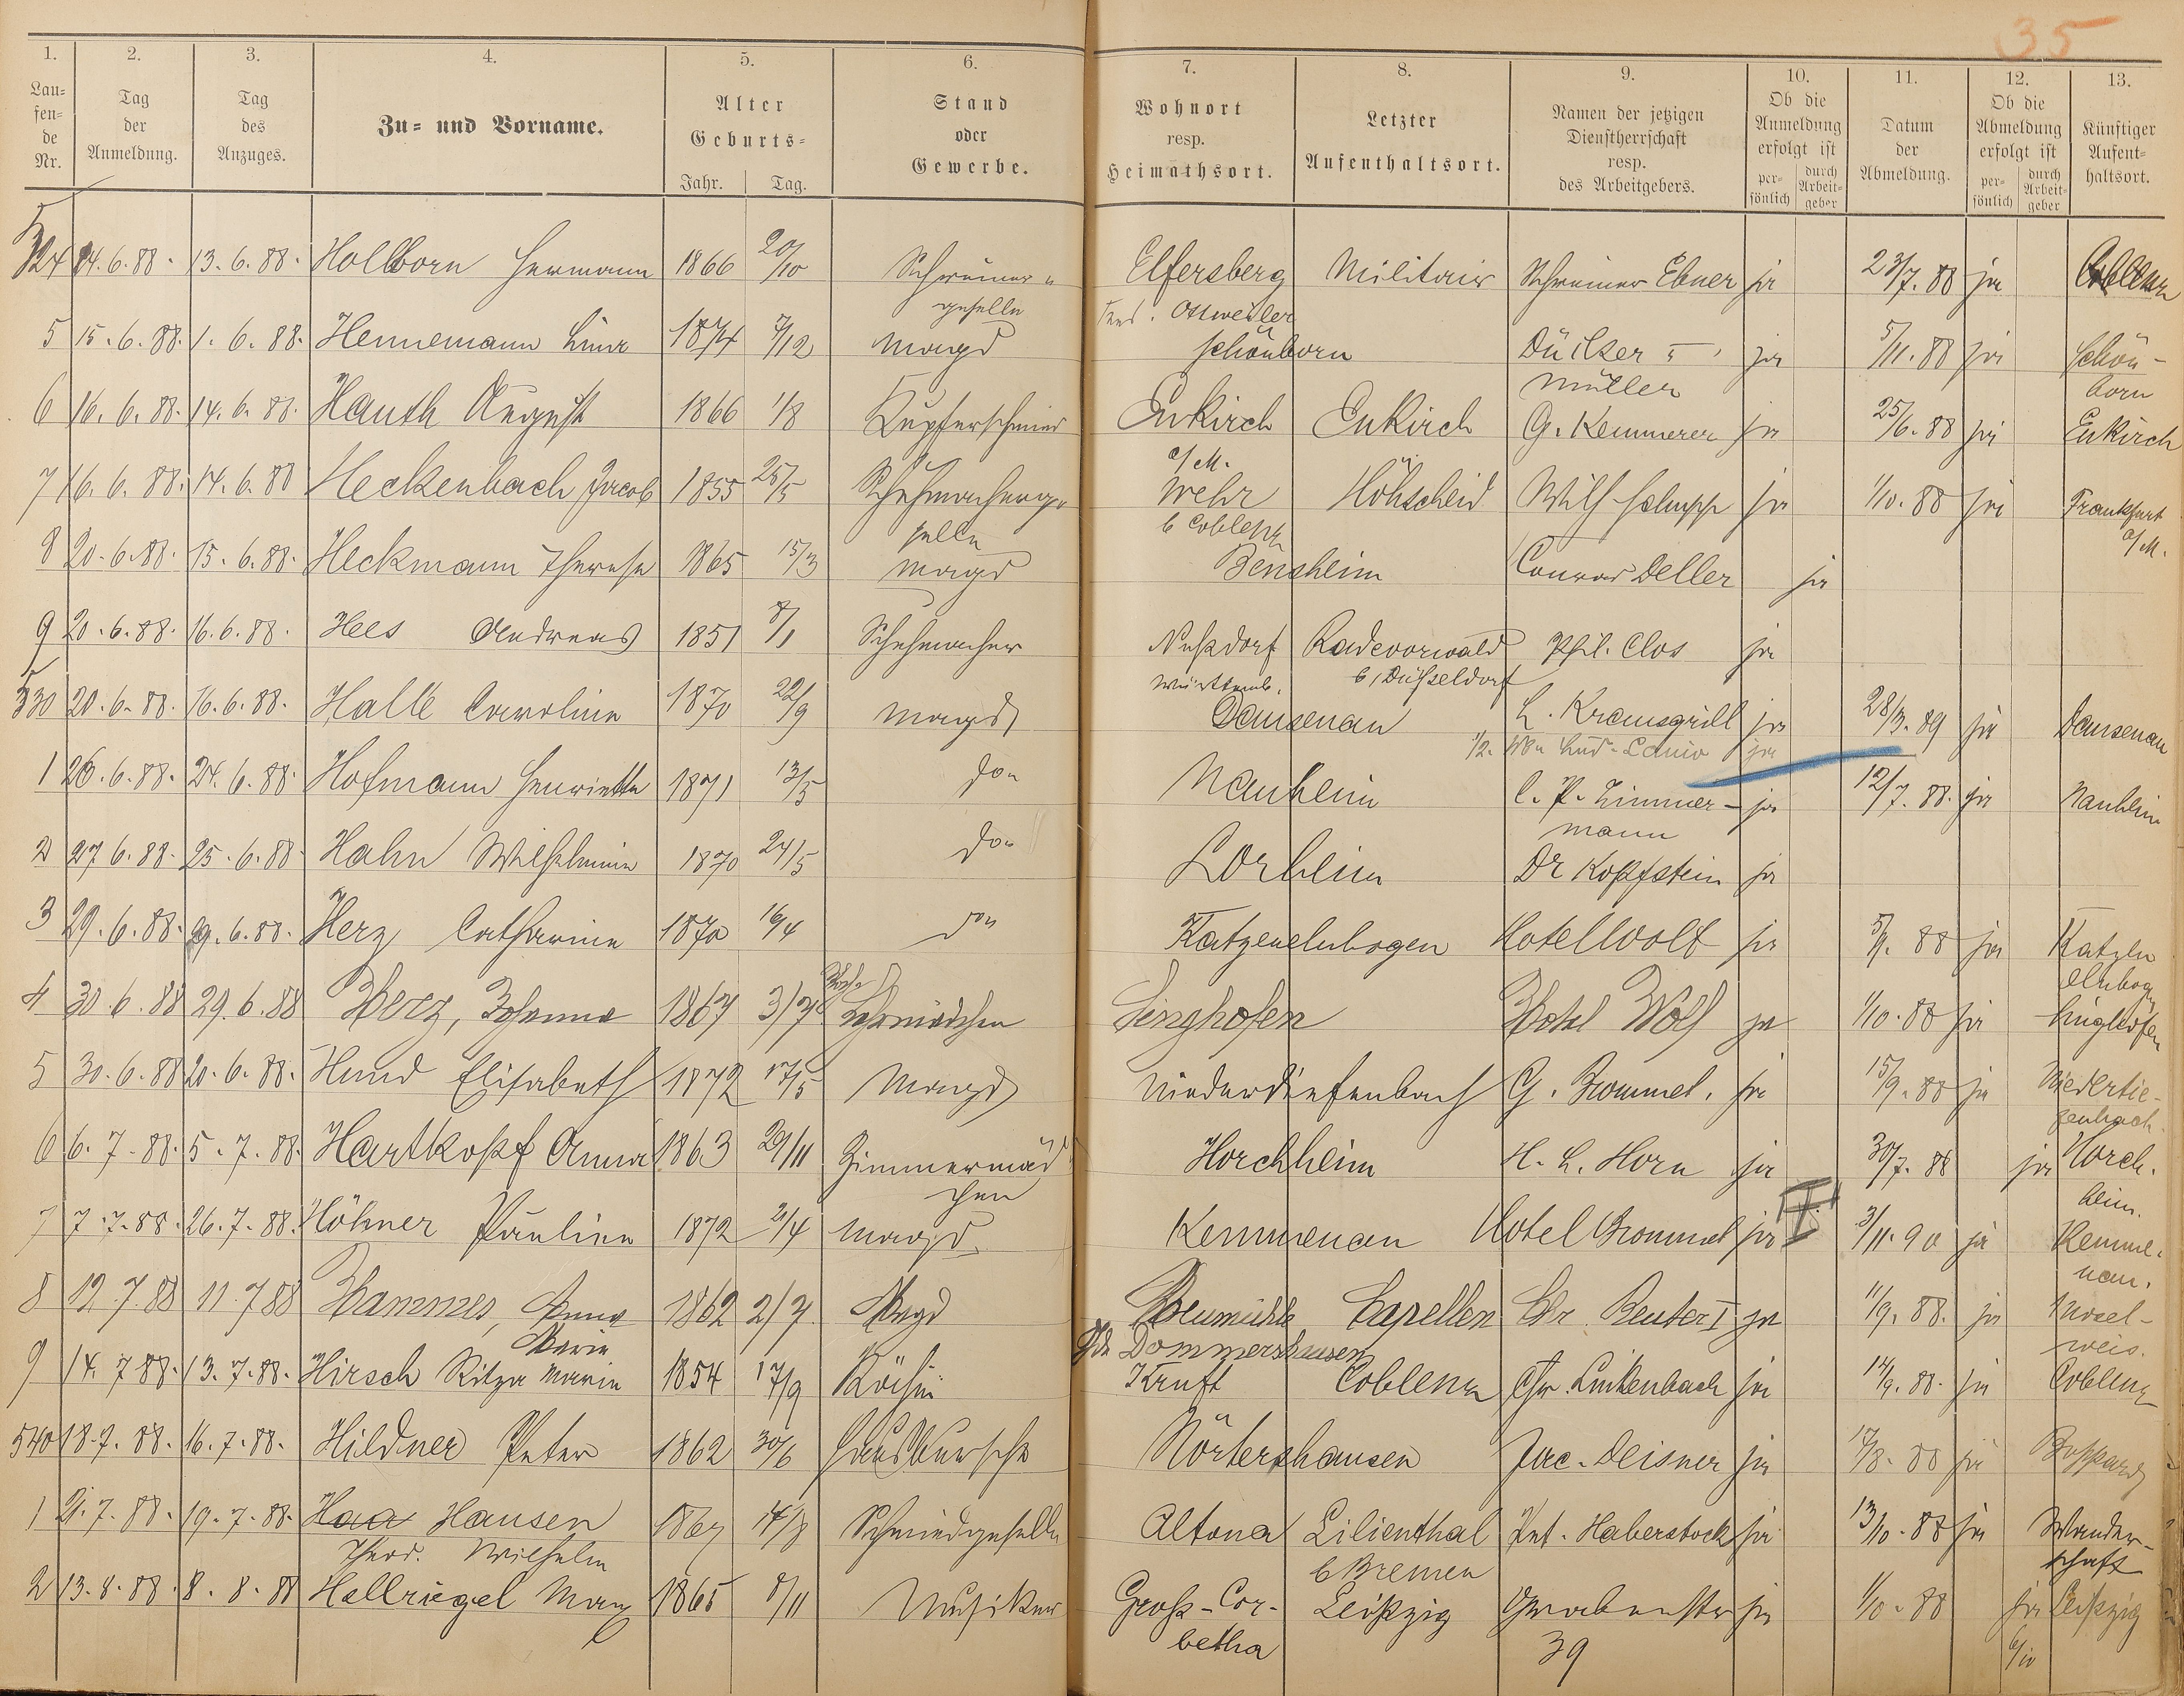 35
1. 2. 3. 4. 5. 6. 7. 8. 9. 10. 11. 12. 13.
Lau=
fen=
de
Nr.
Tag
der
Anmeldung.
Tag
des
Anzuges.
Zu= und Vorname.
Alter
Geburts=
Jahr. Tag.
Stand
oder
Gewerbe.
Wohnort
resp.
Heimathsort.
Letzter
Aufenthaltsort.
Namen der jetzigen
Dienstherrschaft
resp.
des Arbeitgebers.
Ob die
Anmeldung
erfolgt ist
per=
sönlich
durch
Arbeit=
geber
Datum
der
Abmeldung.
Ob die
Abmeldung
erfolgt ist
per=
sönlich
durch
Arbeit=
geber
Künftiger
Aufent=
haltsort.
524 14.6.88. 13.6.88. Hollborn Hermann 1866 20/10 Schreiner Elfersberg Militair Schreiner Ebner ja 23/7.88 ja Coblenz
geselle Ottweiler
5 15.6.88. 1.6.88. Hennemann Lina 1874 7/12 Magd Schönborn ja 5/11.88 ja Schön-
Müller born
6 16.6.88. 14.6.88. Hauth August 1866 1/8 Kupferschmied Enkirch Enkirch G. Kemmerer ja 25/6.88 ja Enkirch
a/M.
7 16.6.88. 14.6.88 Heckenbach Jacob 1855 25/5 Schuhmacherge Wehr Höhscheid Wilh. Schupp ja 1/10.88 ja Frankfurt
selle b Coblenz a/M.
8 20.6.88. 15.6.88. Heckmann Therese 1865 15/3 Magd Bensheim Conrad Deller ja
9 20.6.88. 16.6.88. Hees Andreas 1851 8/1 Schuhmacher Nußdorf Radevorwald Phil. Clos ja
Württemb. b/Düsseldorf
530 20.6.88. 16.6.88. Halle Caroline 1870 22/9 Magd Dausenau L. Kramsgrill ja 28/3.89 ja Dausenau
ja
1 26.6.88. 24.6.88. Hofmann Henriette 1871 13/5 do Nauheim C. P. Zimmer- ja 12/7.88. ja Nauheim
mann
2 27.6.88. 25.6.88. Hahn Wilhelmine 1870 24/5 do Lorheim Dr Kopfstein ja
3 29.6.88. 29.6.88. Herz Catharine 1870 16/4 do Katzenelnbogen Hotel Wolf ja 5/9.88 ja Katzen
elnbogen
4 30.6.88 29.6.88 Herz, Johanna 1867 3/7 Singhofen Hotel Wolf ja 1/10.88 ja Singhofen
5 30.6.88 20.6.88. Hund Elisabeth 1872 17/5 Magd Niederdiefenbach G. Brommel. ja 15/9.88 ja Niedertie-
fenbach.
6 6.7.88. 5.7.88. Hartkopf Anna 1863 29/11 Zimmermäd Horchheim H. L. Horn ja 30/7.88 ja Horch-
chen heim.
7 7.7.88. 26.7.88. Höhner Pauline 1872 2/4 Magd Kemmenau Hotel Brommel ja 3/11.90 ja Kemme-
nau.
8 12.7.88 11.7.88 Hammes, Anna 1862 2/7. Magd Capellen Chr. Reuter I ja 11/9.88. ja Mosel-
Marie Dommershausen weis.
9 14.7.88. 13.7.88. Hirsch Marie 1854 17/9 Köchin Kruft Coblenz Chr. Linkenbach ja 14/9.88. ja Coblenz
540 18.7.88. 16.7.88. Hildner Peter 1862 30/6 Hausbursche Nörtershausen Jac. Deisner ja 17/8.88 ja Boppard
1 21.7.88. 19.7.88. Haa Hansen 1867 14/8 Schmiedgeselle Altona Lilienthal Pet. Haberstock ja 13/10.88 ja Wander-
Theod. Wilhelm b Bremen schaft
2 13.8.88. 8.8.88 Hellriegel Max 1865 8/11 Musiker Groß-Cor- Leipzig Grabenstr ja 1/10.88 ja Leipzig
betha 39